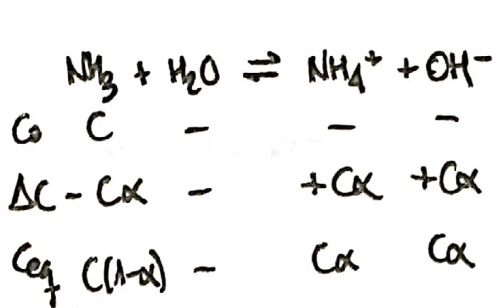 NH₃ + H₂O ⇌ NH₄⁺ + OH⁻
C₀ C - - -
ΔC - Cα - +Cα +Cα
Ceq C(1-α) - Cα Cα